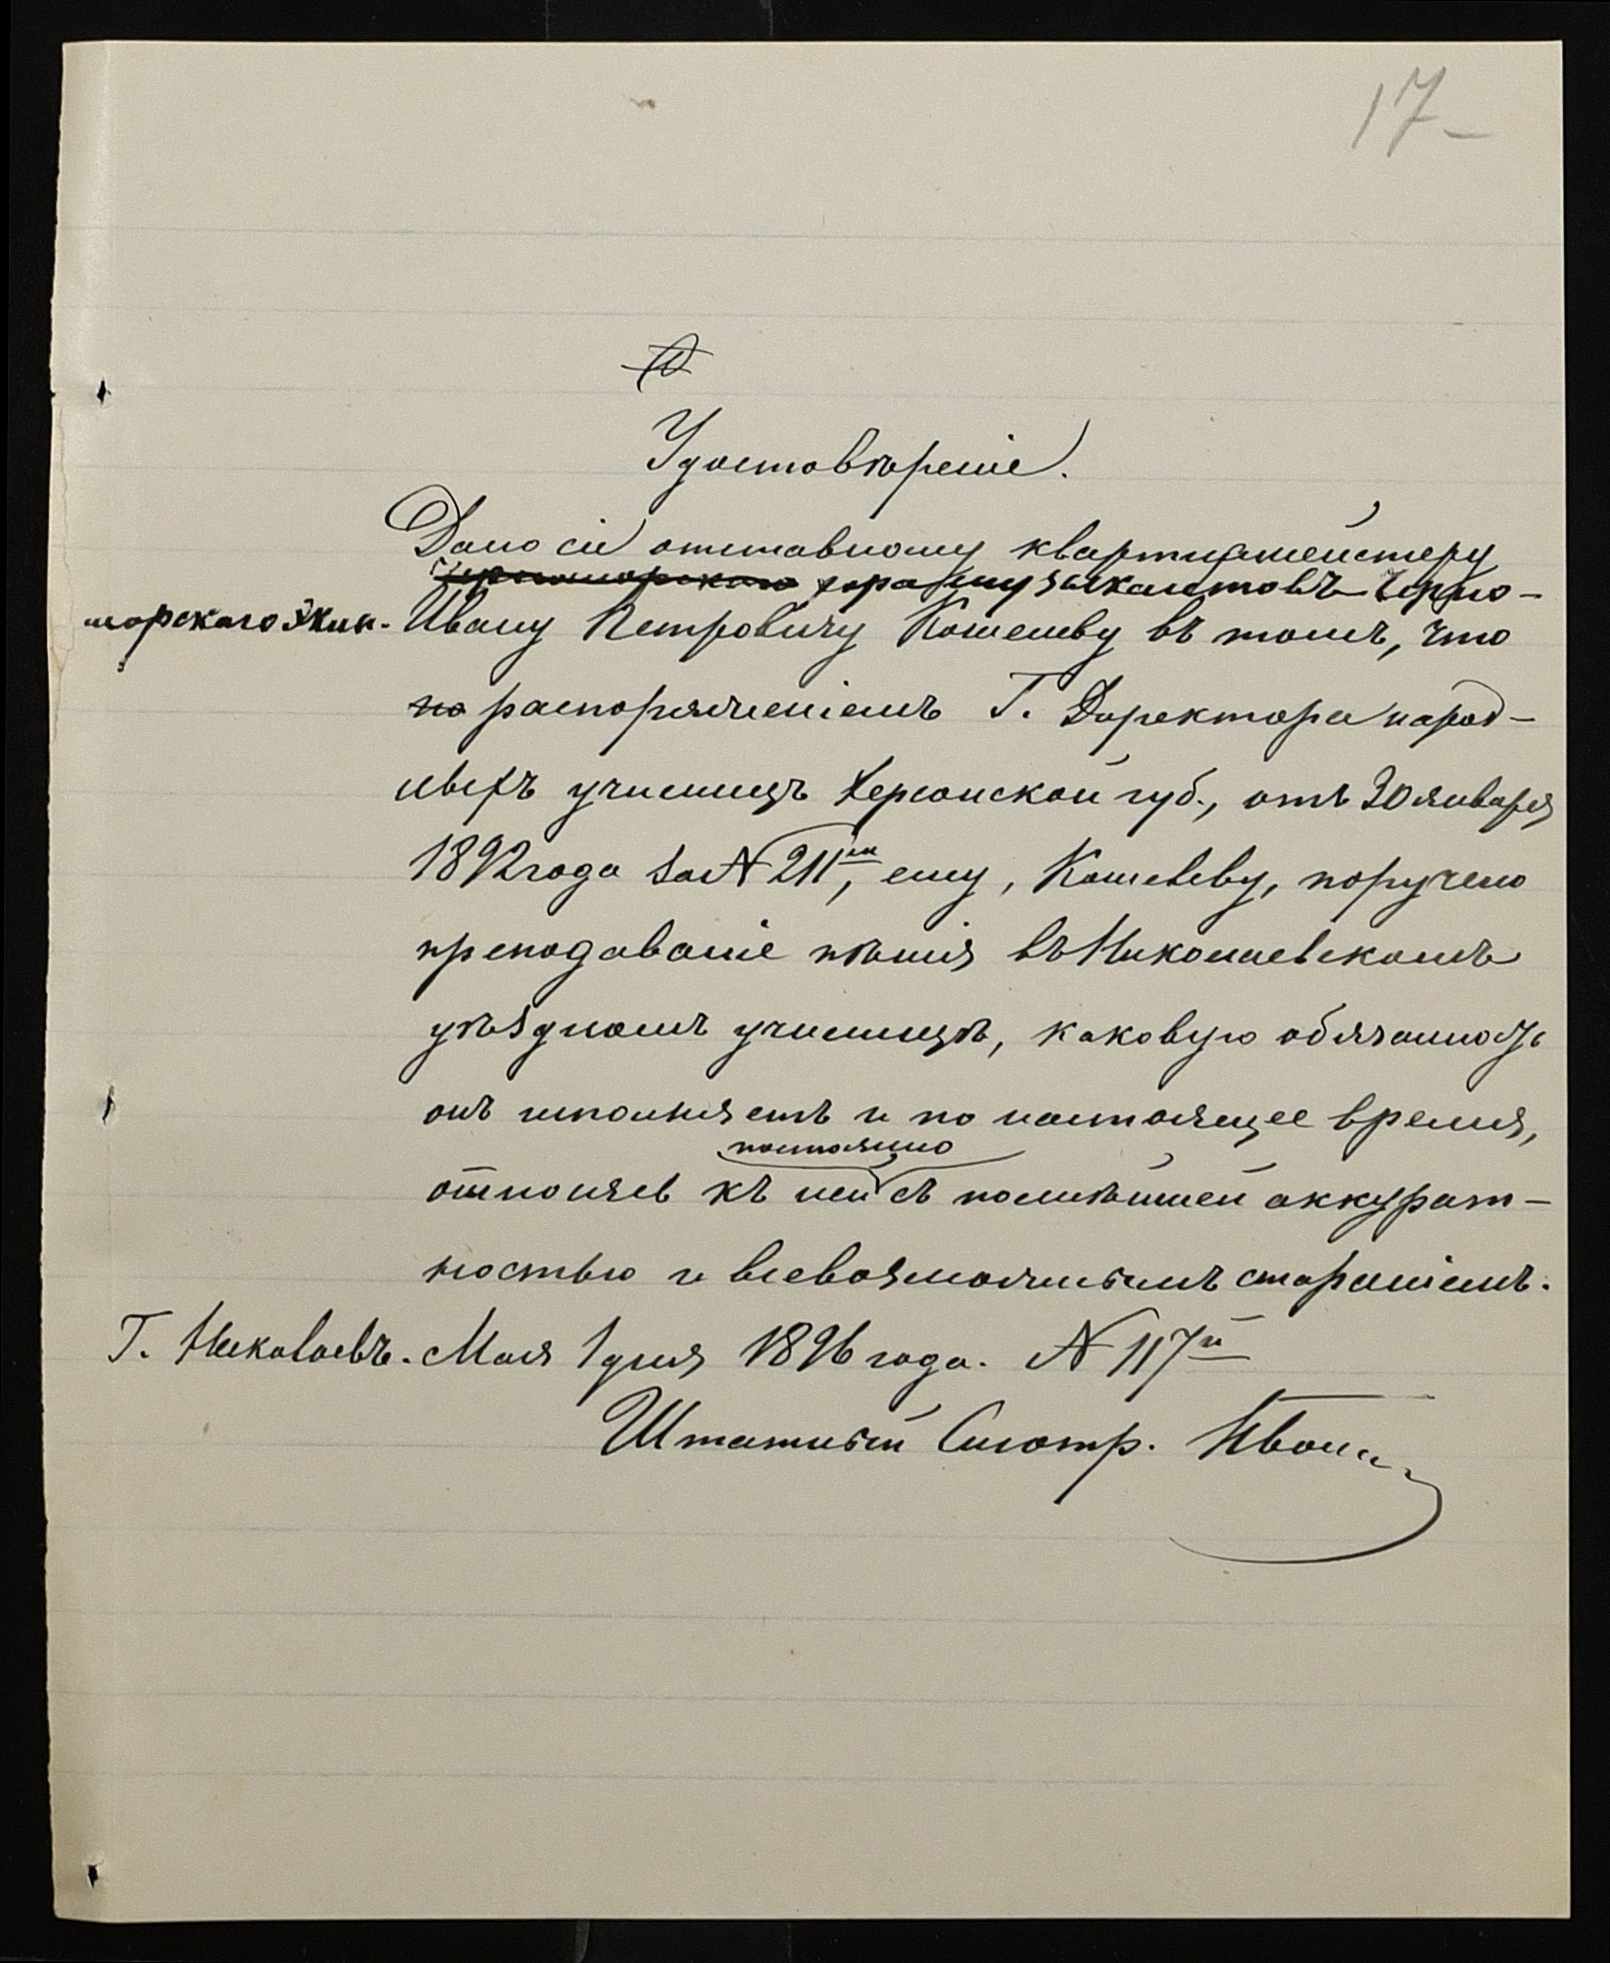 17
Удостовѣреніе.
Дано сіе отставному квартирмейстеру
Черноморскаго хора музыкантовъ Черно-
морскаго Экип. Ивану Петровичу Кошелеву въ томъ, что
по распоряженіемъ Г. Директора народ-
ныхъ училищъ Херсонской губ., отъ 30 января
1892 года за № 211мъ, ему, Кошелеву, поручено
преподаваніе пѣнія въ Николаевскомъ
уѣздномъ училищѣ, каковую обязанность
онъ исполняетъ и по настоящее время,
постоянно
относясь къ ней съ полнѣйшей аккурат-
ностью и всевозможнымъ стараніемъ.
Г. Николаевъ. Мая 1 дня 1896 года. № 117й
Штатный Смотр.